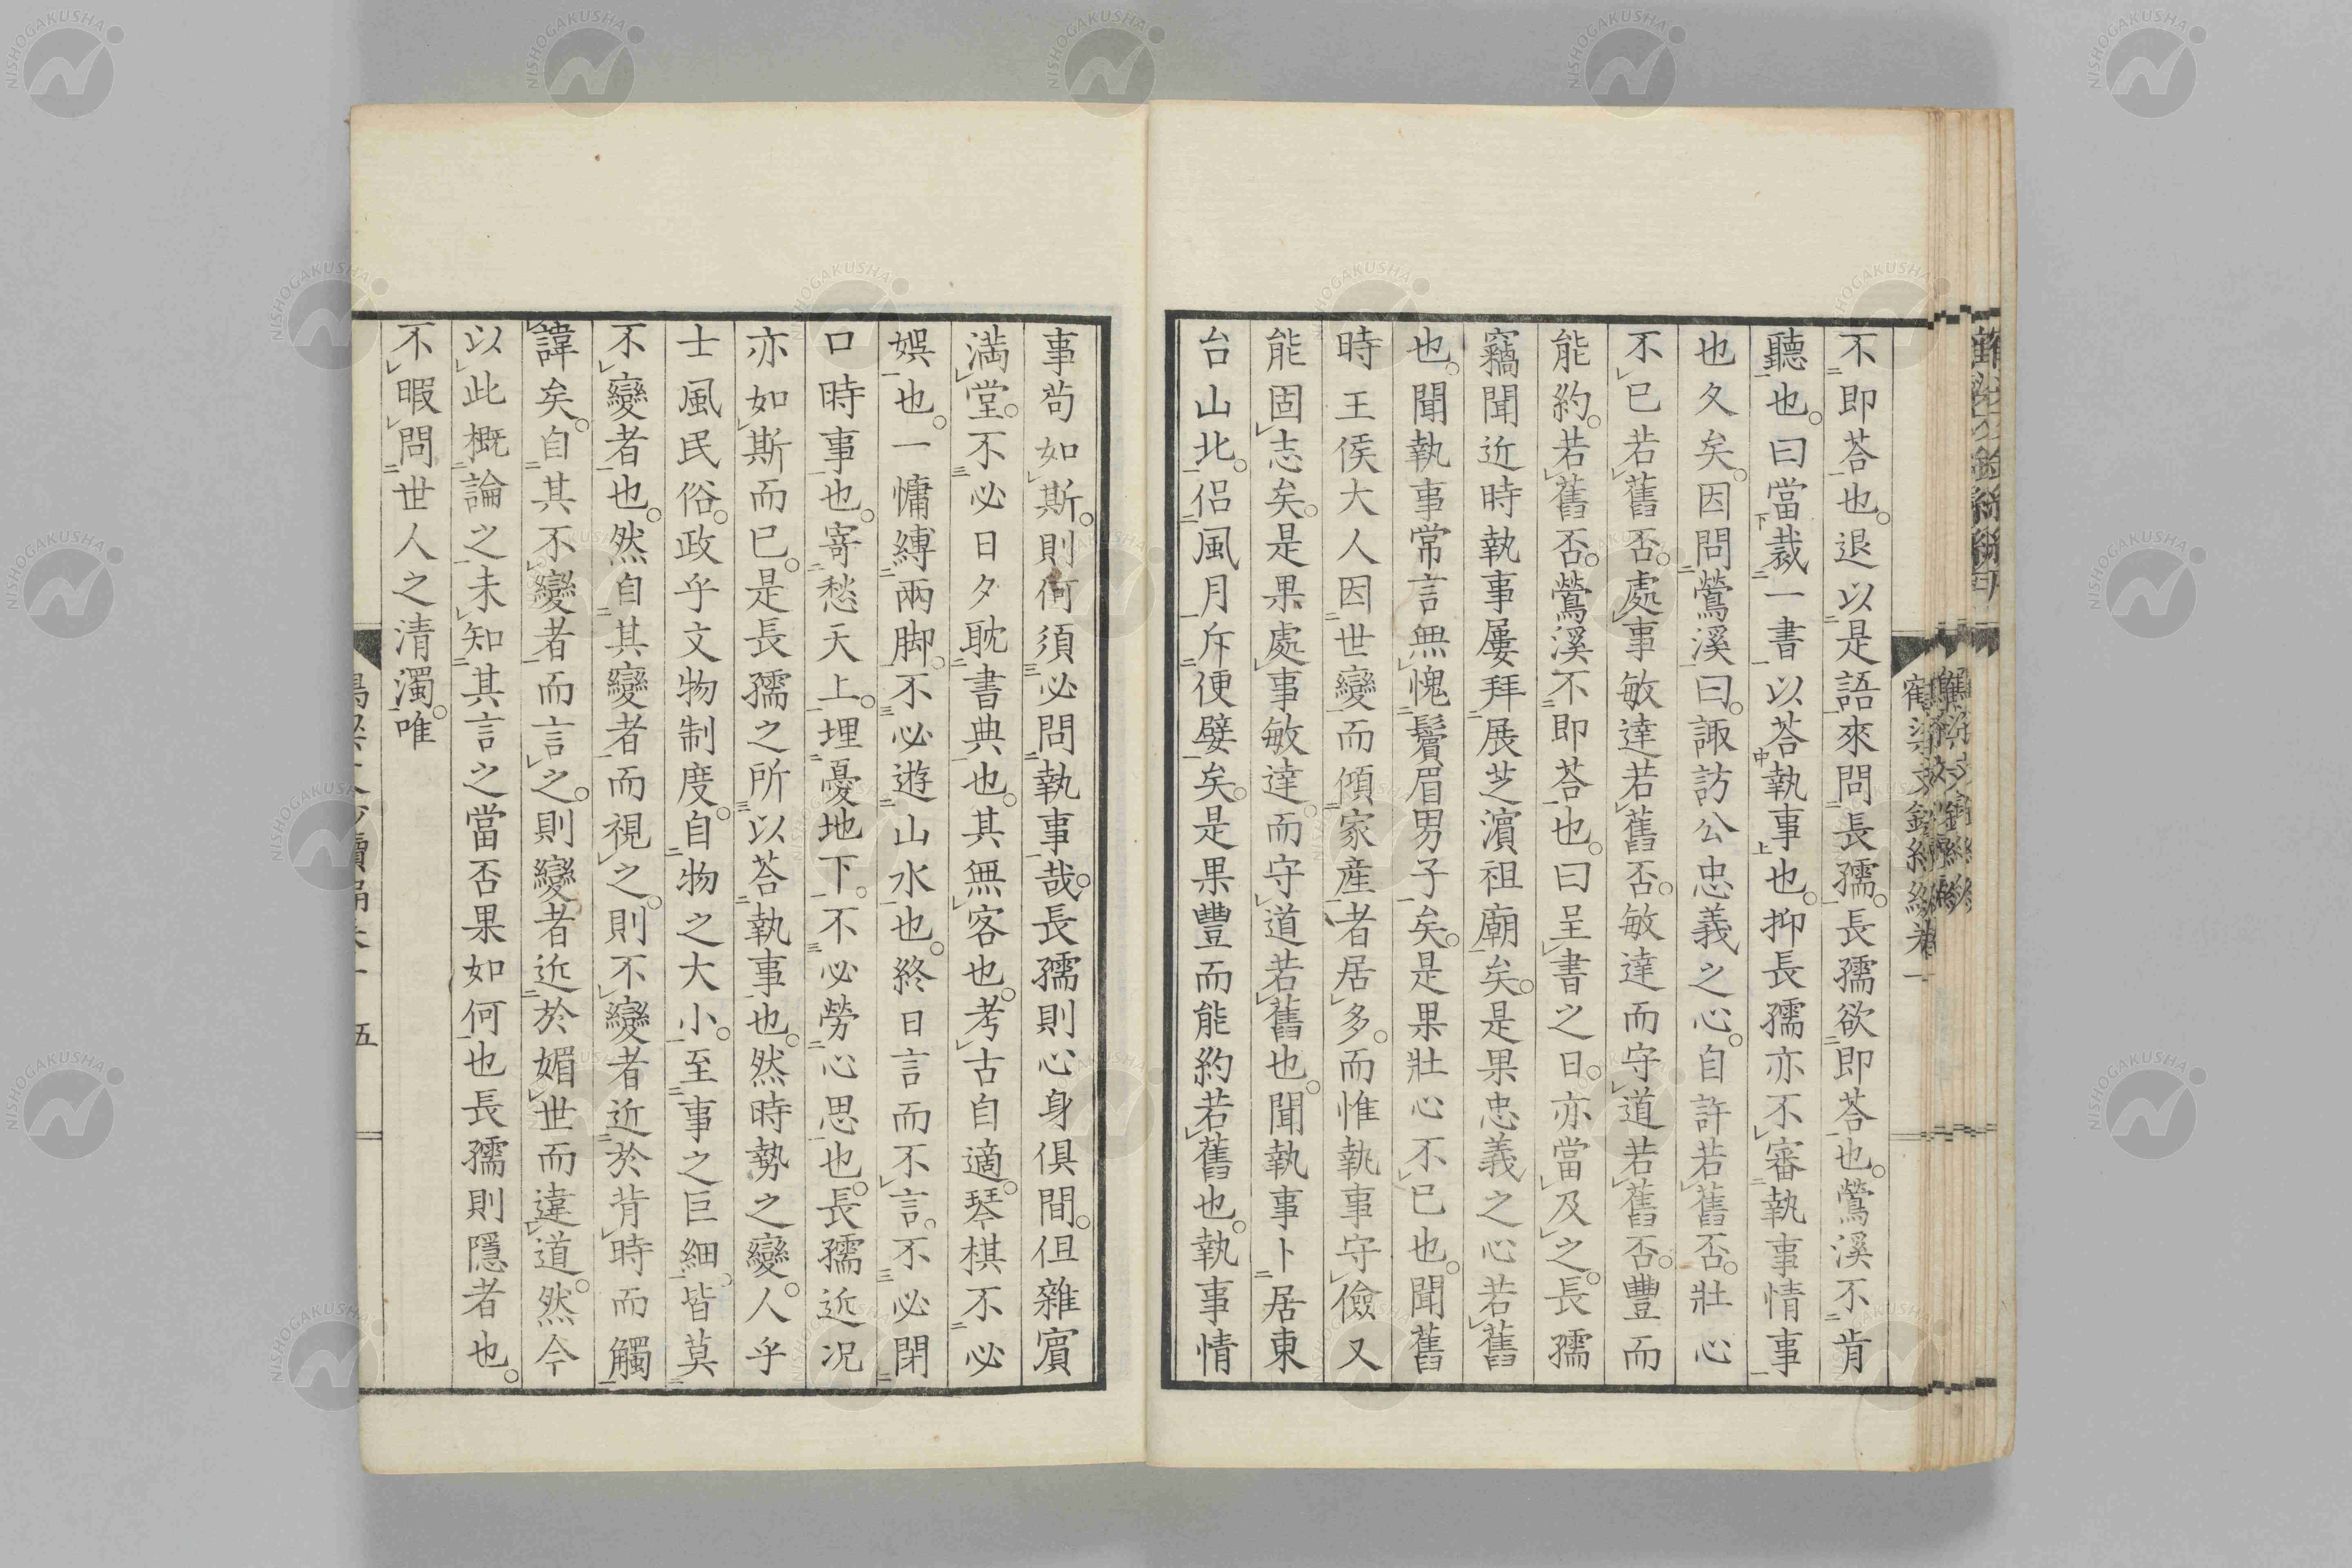 不即荅也。退以是語來問長孺。長孺欲即荅也。鶯溪不肯
聽也。曰當裁一書以荅執事也。抑長孺亦不審執事情事
也久矣。因問鶯溪曰。諏訪公忠義之心。自許若舊否。壯心
不已若舊否。處事敏達若舊否。敏達而守道若舊否。豐而
能約。若舊否。鶯溪不即荅也。曰呈書之日。亦當及之。長孺
竊聞近時執事屢拜展芝濵祖廟矣。是果忠義之心若舊
也。聞執事常言無愧鬚眉男子矣。是果壯心不已也。聞舊
時王侯大人因世變而傾家産者居多。而惟執事守儉又
能固志矣。是果處事敏達。而守道若舊也。聞執事卜居東
台山北。侶風月斥便嬖矣。是果豐而能約若舊也。執事情
事苟如斯。則何須必問執事哉。長孺則心身俱間。但雜賓
滿堂。不必日夕耽書典也。其無客也。考古自適。琴棋不必
娯也。一慵縛兩脚。不必遊山水也。終日言而不言。不必閉
口時事也。寄愁天上。埋憂地下。不必勞心思也。長孺近況
亦如斯而已。是長孺之所以荅執事也。然時勢之變。人乎
士風民俗。政乎文物制度。自物之大小。至事之巨細。皆莫
不變者也。然自其變者而視之。則不變者近於背時而觸
諱矣。自其不變者而言之。則變者近於媚世而違道。然今
以此概論之。未知其言之當否果如何也長孺則隱者也。
不暇問世人之清濁。唯
五
NISHOGAKUSHA